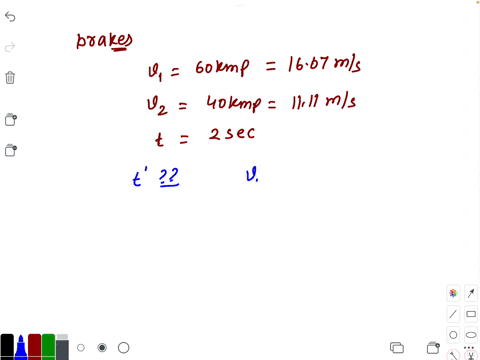 brakes
v₁ = 60 kmp = 16.67 m/s
v₂ = 40 kmp = 11.11 m/s
t = 2 sec
t' ?? v.